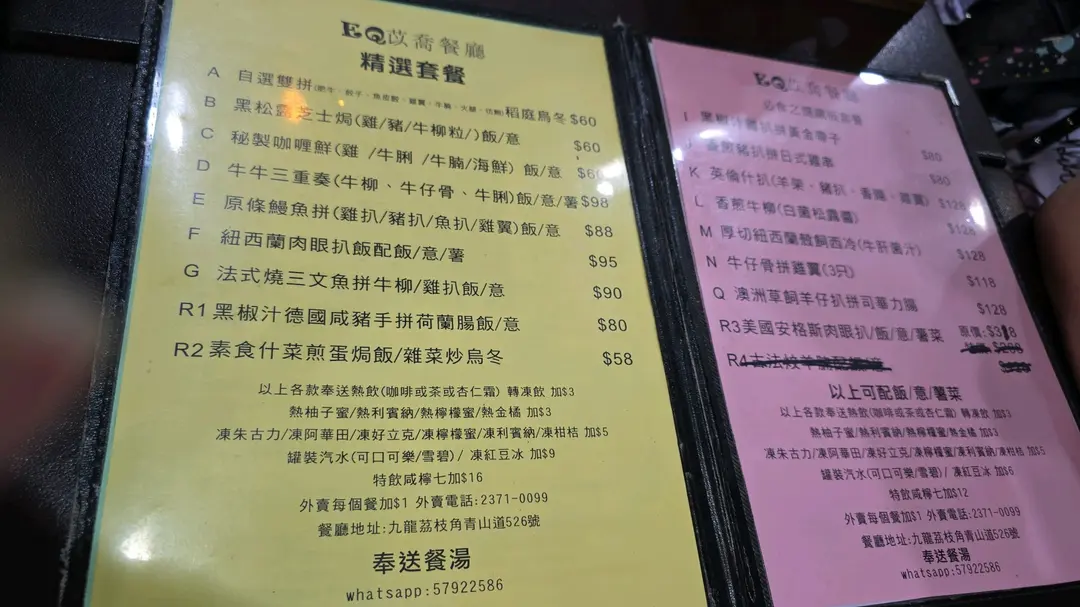 EQ苡喬餐廳
精選套餐
A 自選雙拼(肥牛、餃子、魚皮餃、雞翼、牛脷、火腿、 稻庭烏冬 $60
B 黑松露芝士焗(雞/豬/牛柳粒/)飯/意 $60
C 秘製咖喱鮮(雞 /牛脷 /牛腩/海鮮) 飯/意 $60
D 牛牛三重奏(牛柳、牛仔骨、牛脷)飯/意/薯 $98
E 原條鰻魚拼(雞扒/豬扒/魚扒/雞翼)飯/意 $88
F 紐西蘭肉眼扒飯配飯/意/薯 $95
G 法式燒三文魚拼牛柳/雞扒飯/意 $90
R1 黑椒汁德國咸豬手拼荷蘭腸飯/意 $80
R2 素食什菜煎蛋焗飯/雜菜炒烏冬 $58
以上各款奉送熱飲(咖啡或茶或杏仁霜) 轉凍飲 加$3
熱柚子蜜/熱利賓納/熱檸檬蜜/熱金橘 加$3
凍朱古力/凍阿華田/凍好立克/凍檸檬蜜/凍利賓納/凍柑桔 加$5
罐裝汽水(可口可樂/雪碧) / 凍紅豆冰 加$9
特飲咸檸七加$16
外賣每個餐加$1 外賣電話:2371-0099
餐廳地址:九龍荔枝角青山道526號
奉送餐湯
whatsapp:57922586
EQ苡喬餐廳
必食之鐵板套餐
I 黑椒什雞扒拼黃金帶子 $80
J 香煎豬扒拼日式雞串 $80
K 英倫什扒(羊架、豬扒、香腸、雞翼) $128
L 香煎牛柳(白菌松露醬) $128
M 厚切紐西蘭殼飼西冷(牛肝菌汁) $128
N 牛仔骨拼雞翼(3只) $118
Q 澳洲草飼羊仔扒拼司華力腸 $128
R3 美國安格斯肉眼扒/飯/意/薯菜 原價:$318
R4
以上可配飯/意/薯菜
以上各款奉送熱飲(咖啡或茶或杏仁霜) 轉凍飲 加$3
熱柚子蜜/熱利賓納/熱檸檬蜜/熱金橘 加$3
凍朱古力/凍阿華田/凍好立克/凍檸檬蜜/凍利賓納/凍柑桔 加$5
罐裝汽水(可口可樂/雪碧) / 凍紅豆冰 加$6
特飲咸檸七加$12
外賣每個餐加$1 外賣電話:2371-0099
餐廳地址:九龍荔枝角青山道526號
奉送餐湯
whatsapp:57922586